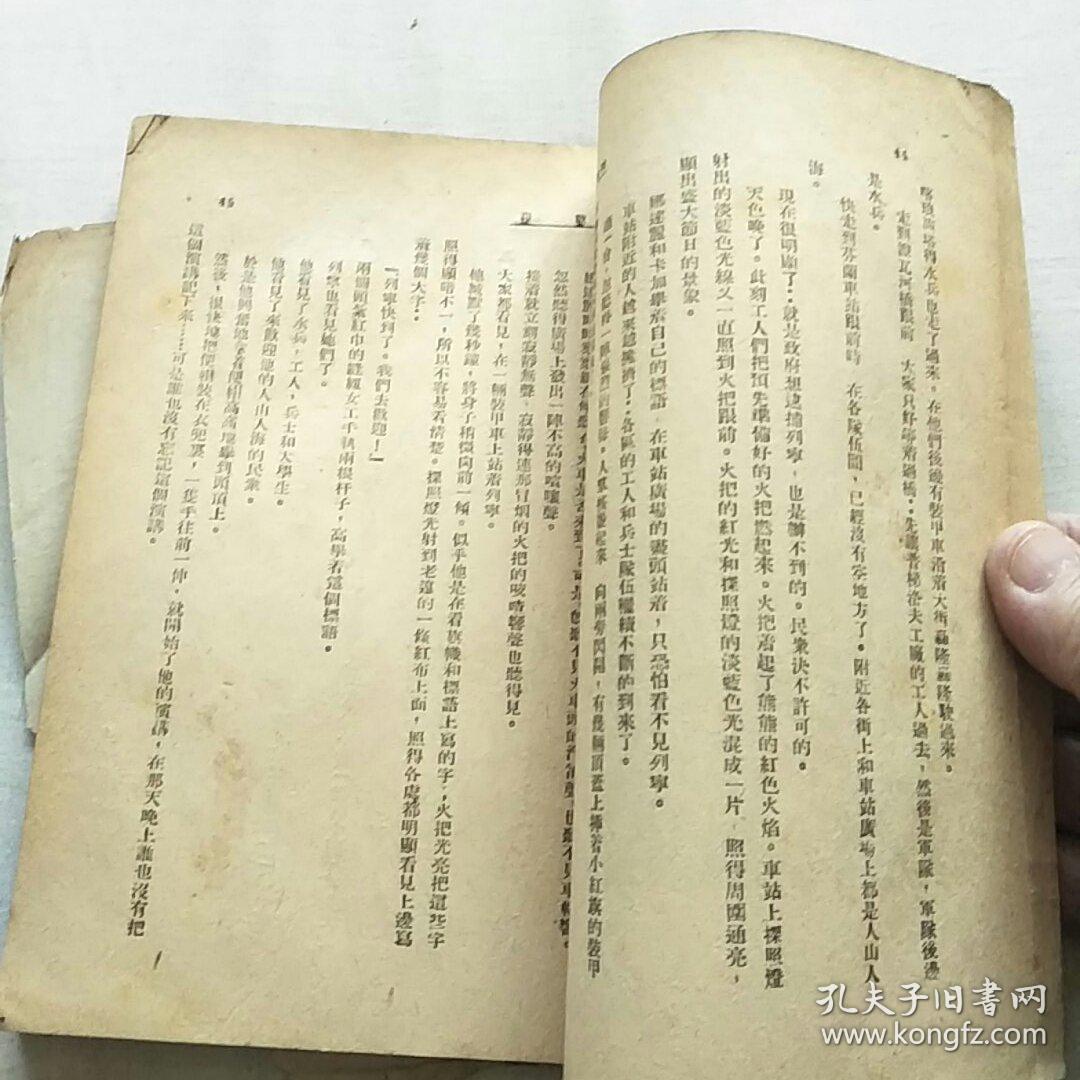 44
喀琅斯塔得水兵也走了過來，在他們後邊有裝甲車沿着大街轟隆轟隆駛過來。
走到涅瓦河橋跟前 大衆只好等着過橋：先讓普梯洛夫工廠的工人過去，然後是軍隊，軍隊後邊
是水兵。
快走到芬蘭車站跟前時 在各隊伍間，已經沒有空地方了。附近各街上和車站廣場上都是人山人
海。
現在很明顯了：就是政府想逮捕列寧，也是辦不到的。民衆決不許可的。
天色晚了。此刻工人們把預先準備好的火把燃起來。火把着起了熊熊的紅色火焰。車站上探照燈
射出的淡藍色光線又一直照到火把跟前。火把的紅光和探照燈的淡藍色光混成一片，照得周圍通亮，
顯出盛大節日的景象。
娜達麗和卡加舉着自己的標語 在車站廣場的盡頭站着，只恐怕看不見列寧。
車站附近的人越來越擁擠了：各區的工人和兵士隊伍繼續不斷的到來了。
向兩旁閃開，有幾輛頂蓋上插着小紅旗的裝甲
45
忽然聽得廣場上發出一陣不高的喧嚷聲。
接着就立刻寂靜無聲，寂靜得連那冒烟的火把的咳喳響聲也聽得見。
大家都看見，在一輛裝甲車上站着列寧。
他緘默了幾秒鐘，將身子稍微向前一傾。似乎他是在看旗幟和標語上寫的字，火把光亮把這些字
照得顯暗不一，所以不容易看清楚。探照燈光射到老遠的一條紅布上面，照得各處都明顯看見上邊寫
着幾個大字：
『列寧快到了。我們去歡迎！』
兩個頭紮紅巾的縫級女工手執兩根杆子，高舉着這個標語。
列寧也看見她們了。
他看見了水兵，工人，兵士和大學生。
他看見了來歡迎他的人山人海的民衆。
於是他興奮地拿着便帽高高地舉到頭頂上。
然後，很快地把便帽裝在衣兜裏，一隻手往前一伸，就開始了他的演講，在那天晚上誰也沒有把
這個演講記下來……可是誰也沒有忘記這個演講。
孔夫子旧书网
www.kongfz.com